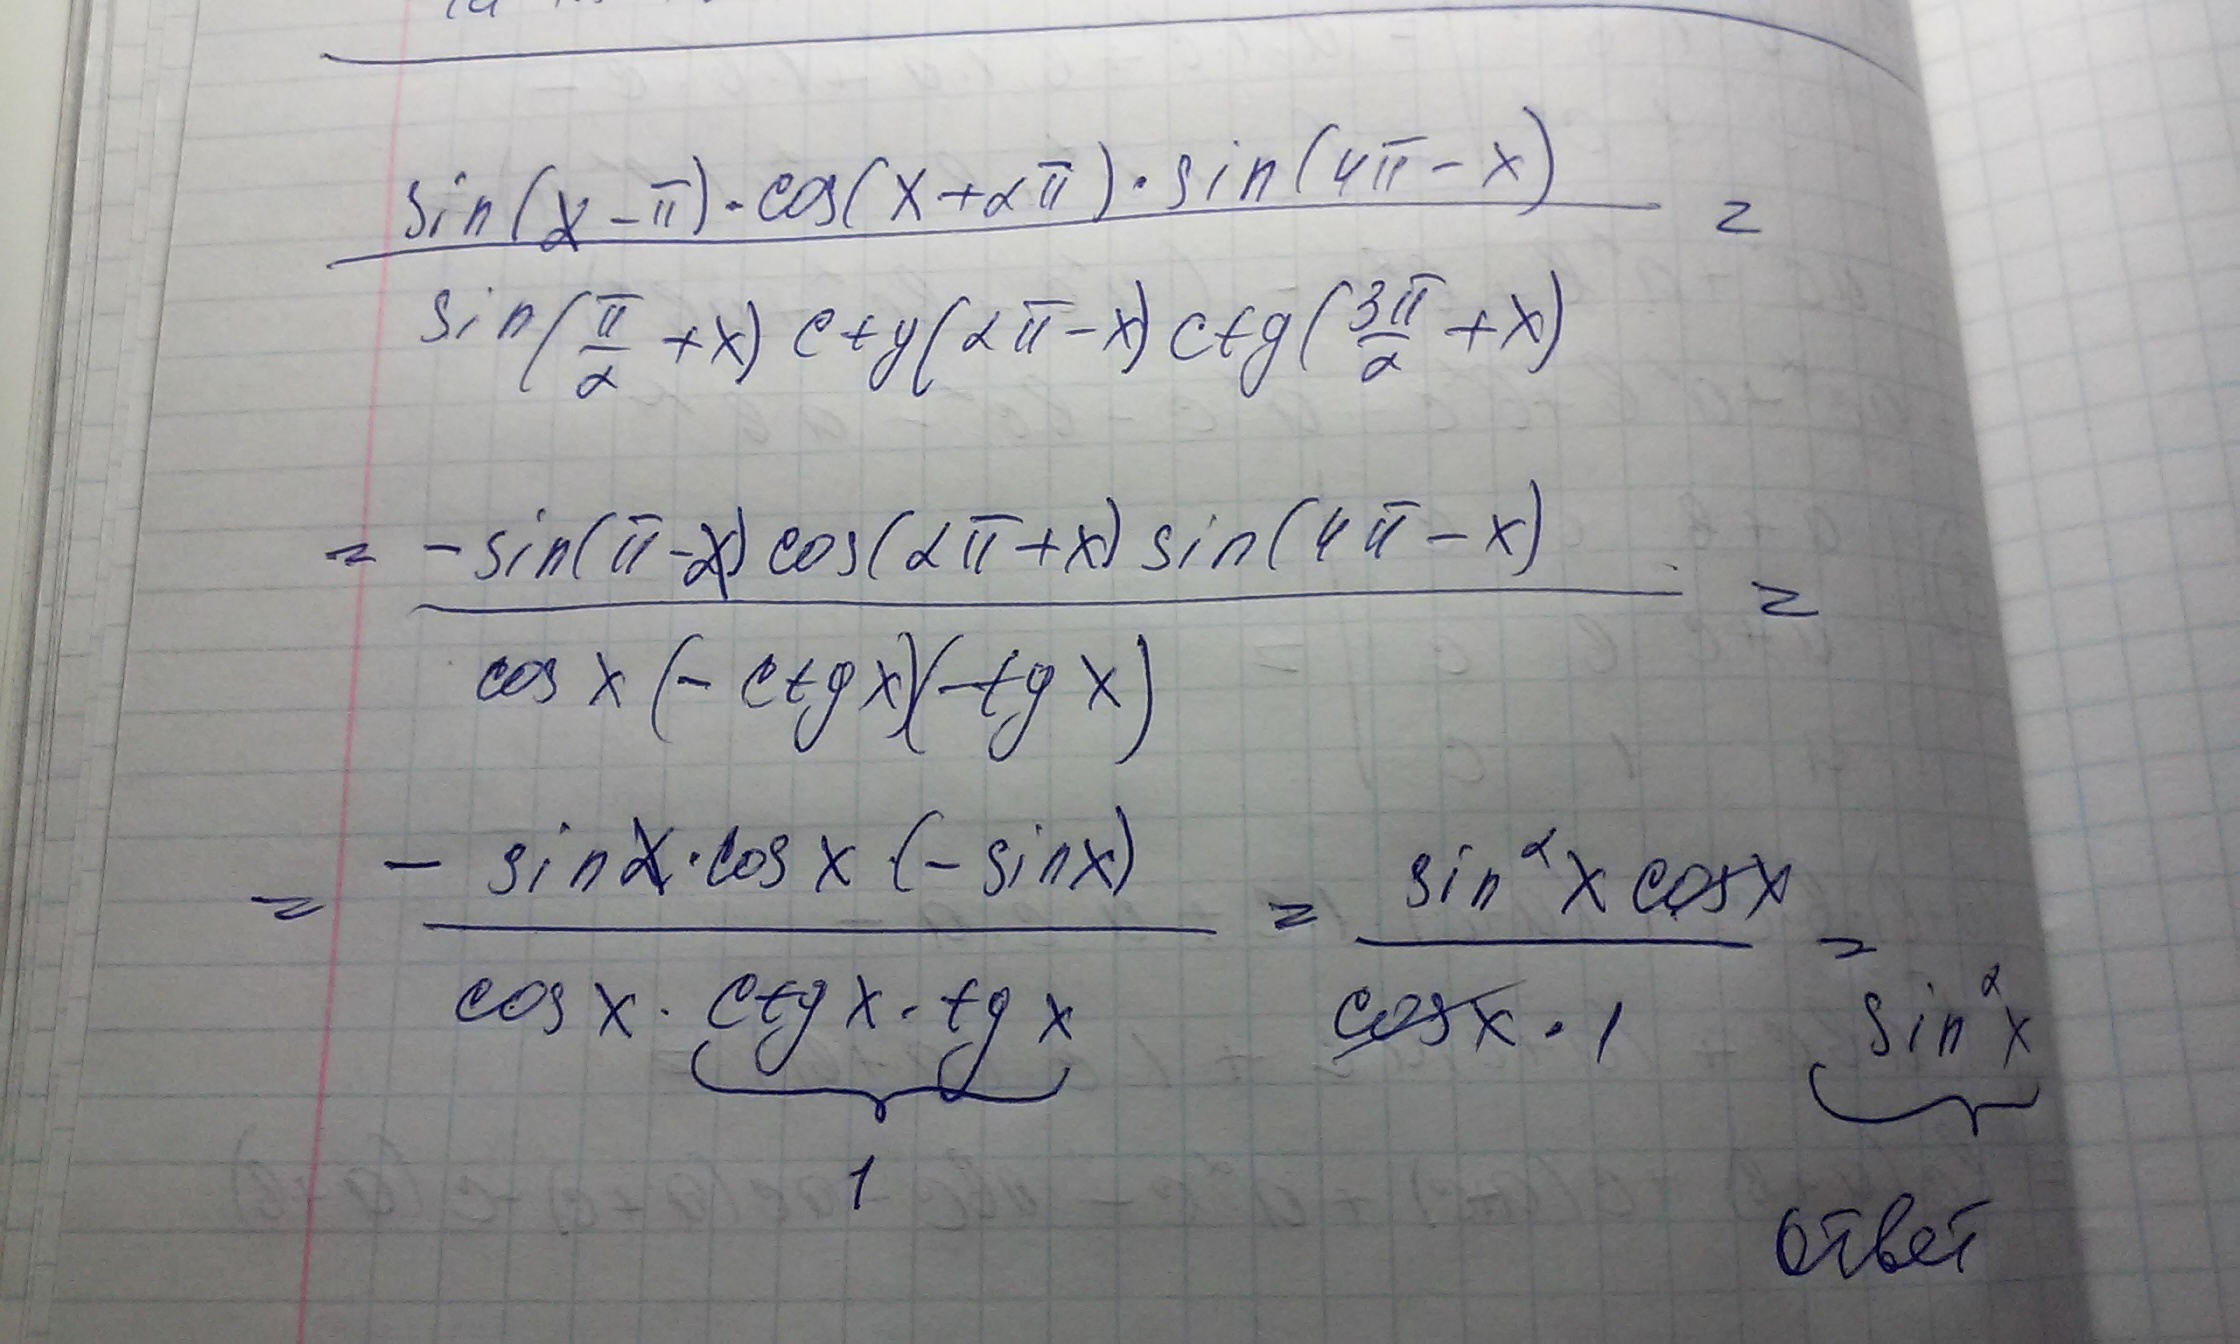 sin(x-π)·cos(x+2π)·sin(4π-x) =
sin(π/2+x) ctg(2π-x) ctg(3π/2+x)
= -sin(π-x) cos(2π+x) sin(4π-x) =
cos x (-ctg x)(-tg x)
= - sin x·cos x·(-sin x) = sin² x cos x =
cos x · ctg x · tg x cos x · 1 sin² x
1
ответ